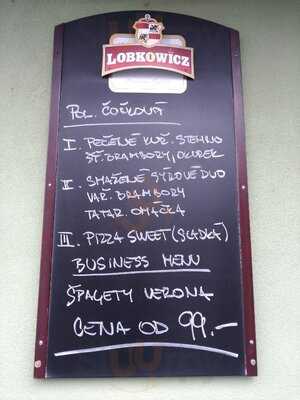 LOBKOWICZ
POL. ČOČKOVÁ
I. PEČENÉ KUŘ. STEHNO
ŠŤ. BRAMBORY, OKUREK
II. SMAŽENÉ SÝROVÉ DUO
VAŘ. BRAMBORY
TATAR. OMÁČKA
III. PIZZA SWEET (SLADKÁ)
BUSINESS MENU
ŠPAGETY VERONA
CENA OD 99.-